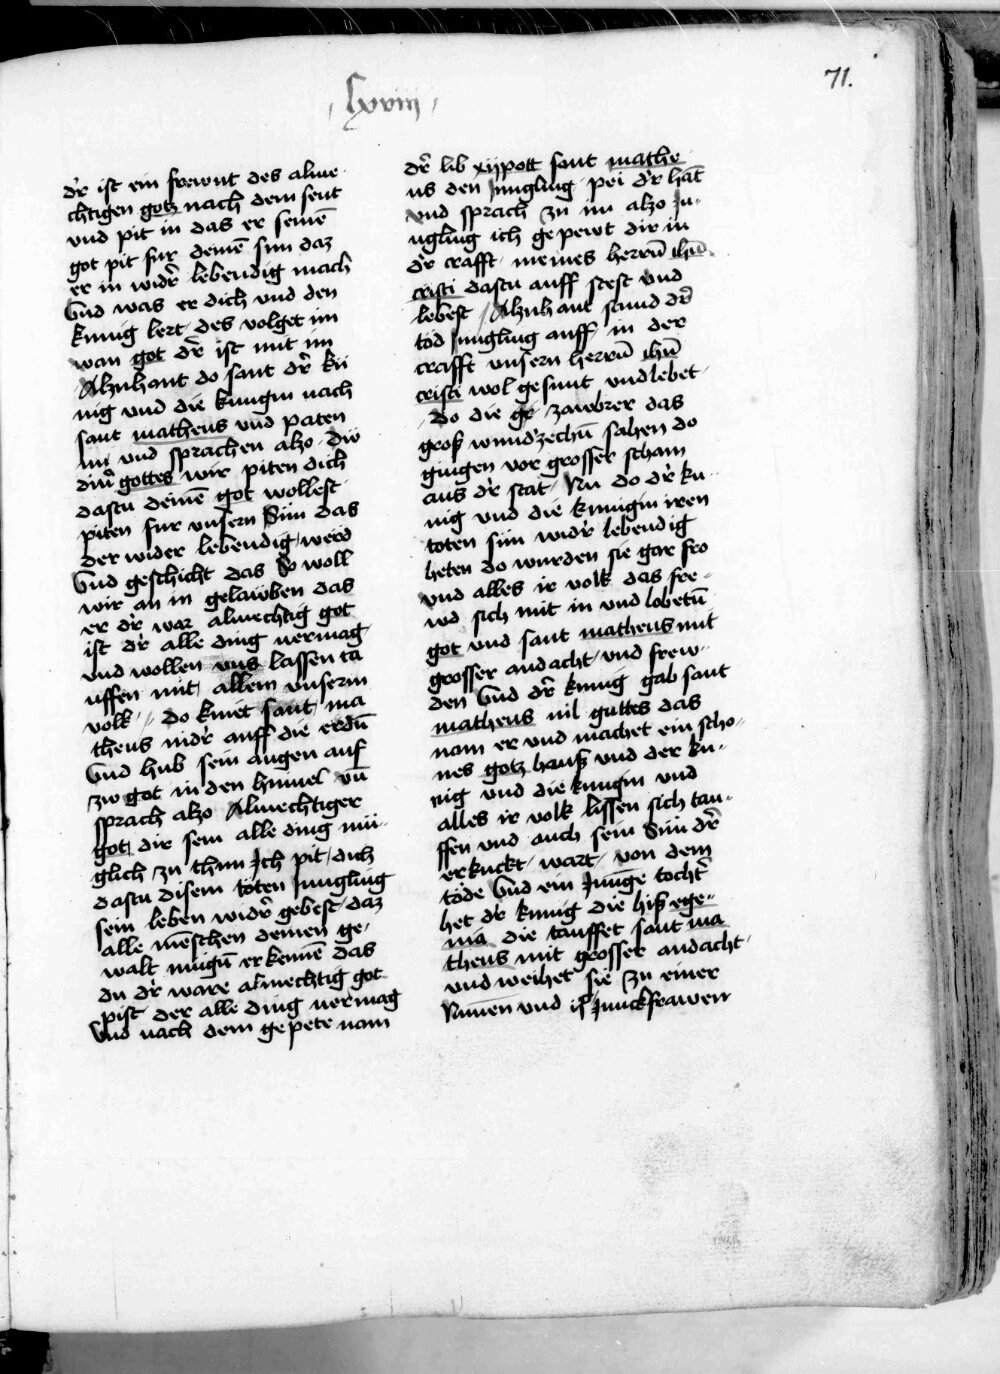 71.
lxviii
d'r ist ein frewnt des alme
chtigen gotz nach dem sent
vnd pit in das er seinē
got pit fur deinē sun daz
er in widr̄ lebendig mach
Vnd was er dich vnd den
kunig lert des volget im
wan got dr̄ ist mit im
Alzuhant do sant dr̄ kü
nig vnd die kungin nach
sant matheus vnd paten
in vnd sprachen alzo dw
din̄ gottes wir piten dich
dastu deinē got wollest
piten fur vnsern Sun das
der wider lebendig werd
Vnd geschicht das So woll
wir an in gelawben das
er d'r war almechtig got
ist d'r alle ding uermag
vnd wollen vns lassen ta
uffen mit allem vnserm
volk // do kniet sant ma
theus nid'r auff die erdn̄
Vnd hub sein augen auf
zw got in den himel vn̄
sprach alzo Almechtiger
got dir sein alle ding mü
glich zu thun Ich pit dich
dastu disem toten Jungling
sein leben widr̄ gebest daz
alle mēschen deinen ge
walt mügn̄ erkennē das
du d'r ware almechtig got
pist der alle ding uermag
Vnd nach dem gepete nam
dr̄ lib xijpott sant mathe
us den Jungling pei d'r hāt
vnd sprach zu im alzo Ju
ngling ich gepewt dir in
d'r crafft meines herrn̄ ihū
cristi dastu auff stest vnd
lebest / Alzuhant stund dr̄
tod Jungling auff in der
crafft vnsern herrn̄ ihū
cristi wol gesunt vnd lebet
do die zawbrer das
groß wundzechn̄ sahen do
gingen vor grosser scham
aus d'r stat Nu do d'r ku
nig vnd die kunigin iren
toten sun wid'r lebendig
heten do wurden sie gar fro
vnd alles ir volk das fre
wd sich mit in vnd lobetn̄
got vnd sant matheus mit
grosser andacht vnd frew
den Vnd dr̄ kunig gab sant
matheus uil guttes das
nam er vnd machet ein scho
nes gotz hauß vnd der ku
nig vnd die kungin vnd
alles ir volk lissen sich tau
ffen vnd auch sein Sun dr̄
erkuckt wart von dem
tode Vnd ein Junge tochtr̄
het d'r kunig die hiß ege
nia die tauffet sant ma
theus mit grosser andacht
vnd weihet sie zu einer
Nunnen vnd Junckfrawen